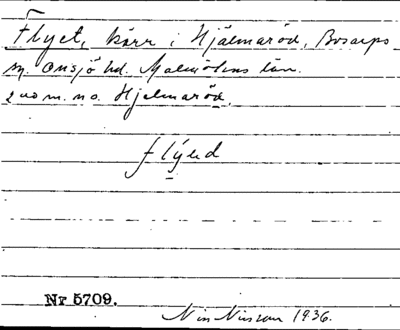 Flyet, kärr i Hjälmaröd, Bosarps
sn. Onsjö hd. Malmöhus län.
200 m. no. Hjelmaröd.
flýed
Nr 5709.
Nils Nilsson 1936.